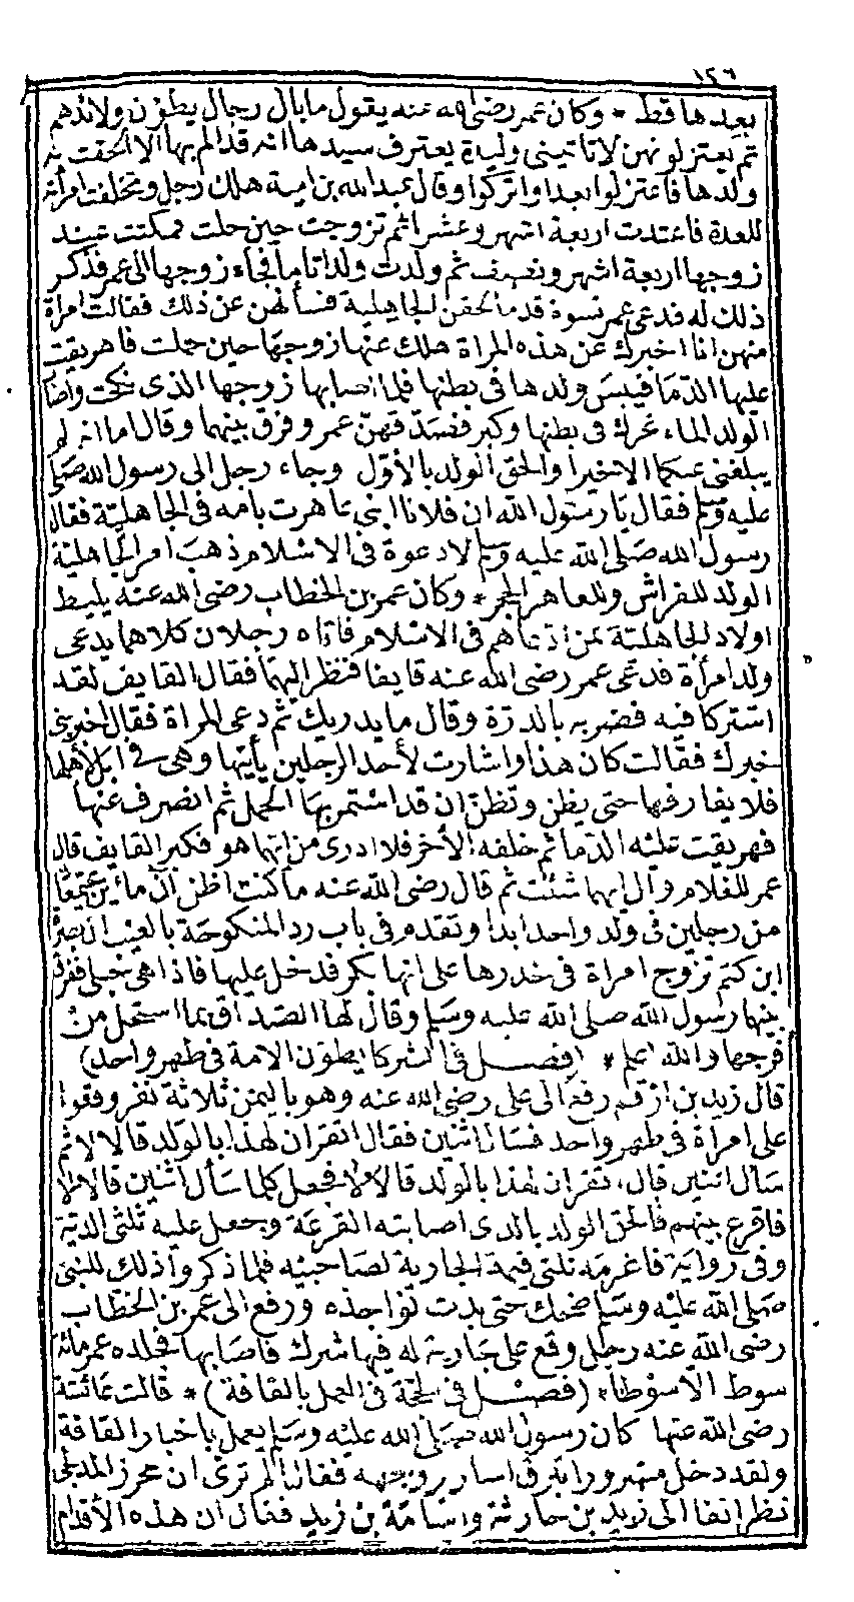 ١٤٦
بعيدها قط * وكان عمر رضى الله عنه يقول ما بال رجال يطؤن ولائدهم
ثم يعتزلونهن لا تاتينى وليدة يعترف سيدها انه قد الم بها الا الحقت به
ولدها فاعتزلوا بعدا واتركوا وقال عبد الله بن امية هلك رجل وتخلفت امرأته
للعدة فاعتدت اربعة اشهر وعشرا ثم تزوجت حين حلت فمكثت عند
زوجها اربعة اشهر ونصف ثم ولدت ولدا تاما فجاء زوجها الى عمر فذكر
ذلك له فدعى عمر نسوة قدما لحقن الجاهلية فسألهن عن ذلك فقالت امرأة
منهن انا اخبرك عن هذه المراة هلك عنها زوجها حين حملت فاهريقت
عليها الدما فيبس ولدها فى بطنها فلما اصابها زوجها الذى نكحت واصا
الولد الماء تحرك فى بطنها وكبر فصدقهن عمر وفرق بينهما وقال اما انه لم
يبلغنى عنكما الا خيرا والحق الولد بالأول وجاء رجل الى رسول الله صلى
عليه وسلم فقال يا رسول الله ان فلانا ابنى عاهرت بامه فى الجاهلية فقال
رسول الله صلى الله عليه وسلم لا دعوة فى الاسلام ذهب امر الجاهلية
الولد للفراش وللعاهر الحجر * وكان عمر بن الخطاب رضى الله عنه يليط
اولاد الجاهلية بمن ادعاهم فى الاسلام فاتاه رجلان كلاهما يدعى
ولد امرأة فدعى عمر رضى الله عنه قايفا فنظر اليهما فقال القايف لقد
اشتركا فيه فضربه بالدرة وقال ما يدريك ثم دعى المراة فقال اخبرينى
خبرك فقالت كان هذا واشارت لأحد الرجلين يأتيها وهى فى ابل لأهلها
فلا يفارقها حتى يظن وتظن ان قد استمر بها الحمل ثم انصرف عنها
فهريقت عليه الدما ثم خلفه الأخر فلا ادرى من ايهما هو فكبر القايف قال
عمر للغلام وال ايهما شئت ثم قال رضى الله عنه ما كنت اظن ان مائين يجتمعان
من رجلين فى ولد واحد ابدا وتقدم فى باب رد المنكوحة بالعيب ان بصرة
ابن كتم تزوج امراة فى خدرها على انها بكر فدخل عليها فاذا هى حبلى ففرق
بينها رسول الله صلى الله عليه وسلم وقال لها الصداق بما استحل من
فرجها والله اعلم * (فصل فى الشركا يطؤن الامة فى طهر واحد)
قال زيد بن ارقم رفع الى على رضى الله عنه وهو باليمن ثلاثة نفر وقعوا
على امرأة فى طهر واحد فسأل اثنين فقال اتقران لهذا بالولد قالا لا ثم
سأل اثنين قال اتقران لهذا بالولد قالا لا فجعل كلما سأل اثنين قالا لا
فاقرع بينهم فالحق الولد بالذى اصابته القرعة وجعل عليه ثلثى الدية
وفى رواية فاغرمه ثلثى قيمة الجارية لصاحبيه فلما ذكروا ذلك للنبى
صلى الله عليه وسلم ضحك حتى بدت نواجذه ورفع الى عمر بن الخطاب
رضى الله عنه رجل وقع على جارية له فيها شرك فاصابها فجلده عمر مائة
سوط الا سوطا * (فصل فى حجة فى العمل بالقافة) * قالت عائشة
رضى الله عنها كان رسول الله صلى الله عليه وسلم يعمل باخبار القافة
ولقد دخل مسرورا تبرق اسارير وجهه فقال الم ترى ان محرز المدلجى
نظر انفا الى زيد بن حارثة واسامة بن زيد فقال ان هذه الأقدام